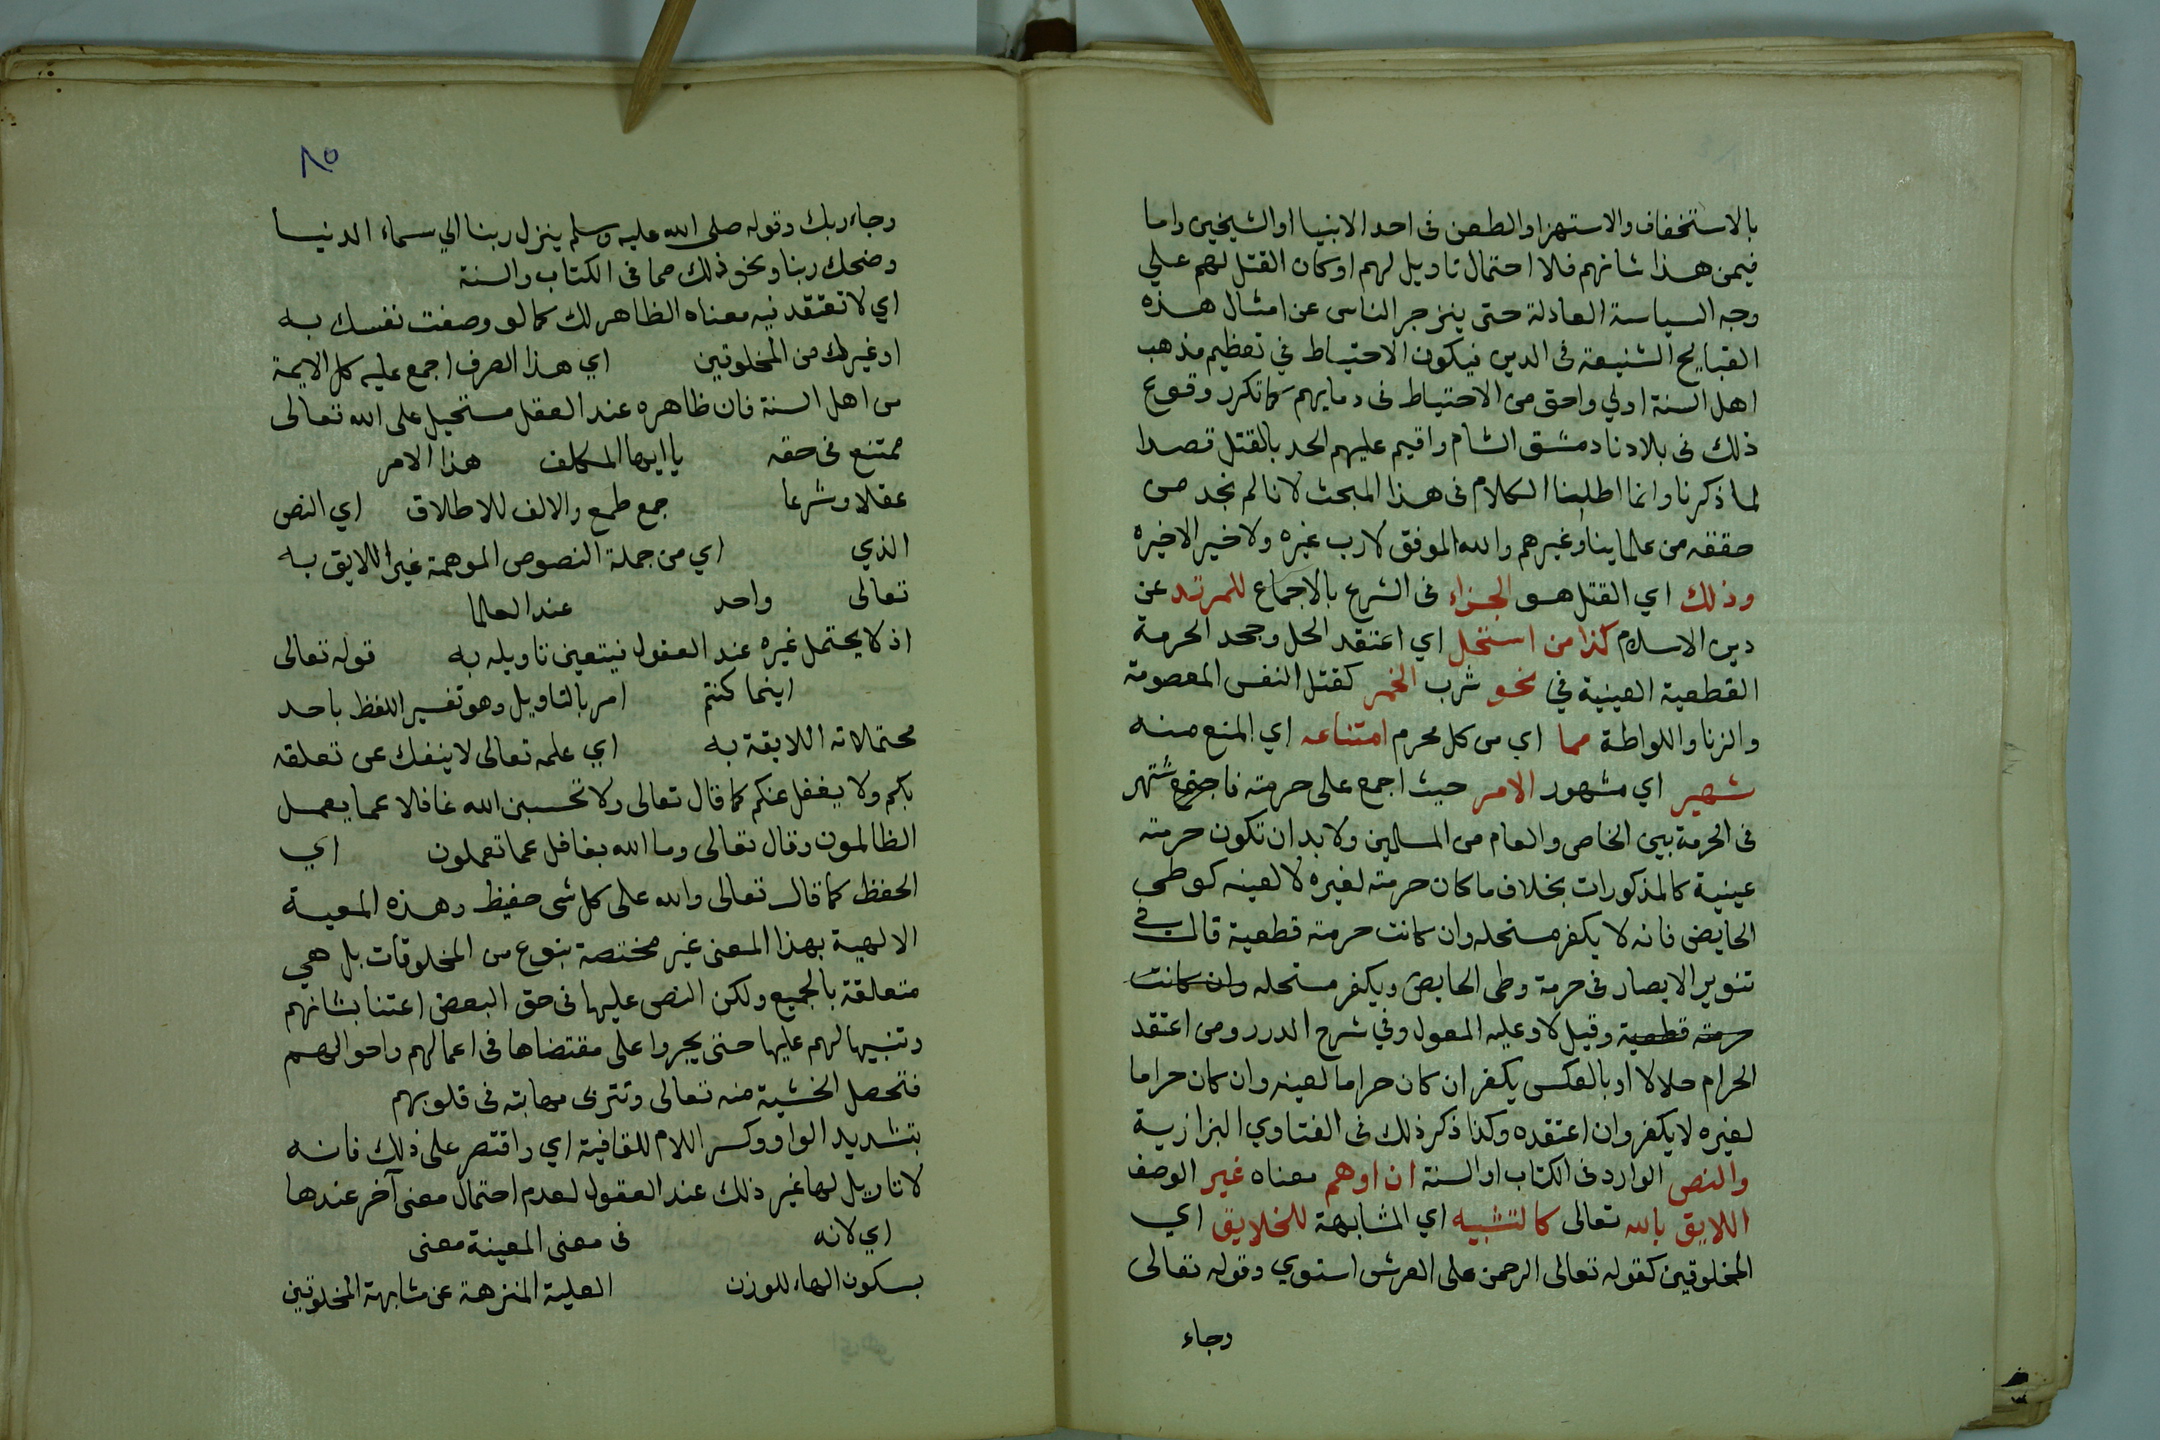 بالاستخفاف والاستهزا والطعن فى احد الانبيا او الشيخين واما
فيمن هذا شانهم فلا احتمال تاويل لهم او كان القتل لهم علي
وجه السياسة العادلة حتى ينزجر الناس عن امثال هذه
القبايح الشنيعة فى الدين فيكون الاحتياط في تعظيم مذهب
اهل السنة اولي واحق من الاحتياط فى دمايهم كما تكرر وقوع
ذلك فى بلادنا دمشق الشام واقيم عليهم الحد بالقتل قصدا
لما ذكرنا وانما اطلبنا الكلام فى هذا المبحث لانا لم نجد من
حققه من علماينا وغيرهم والله الموفق لا رب غيره ولا خير الا خيره
وذلك اي القتل هو الجزاء فى الشرع بالاجماع للمرتد عن
دين الاسلام كذا من استحل اي اعتقد الحل وجحد الحرمة
القطعية العينية في نحو شرب الخمر كقتل النفس المعصومة
والزنا واللواطة مما اي من كل محرم امتناعه اي المنع منه
شهير اي مشهور الامر حيث اجمع على حرمته فاجتمع شتهر
فى الحرمة بين الخاص والعام من المسلمين ولا بد ان تكون حرمته
عينية كالمذكورات بخلاف ما كان حرمته لغيره لا لعينه كوطي
الحايض فانه لا يكفر مستحله وان كانت حرمته قطعية قال في
تنوير الابصار فى حرمة وطي الحايض ويكفر مستحله وان كانت
حرمته قطعية وقيل لا وعليه المعول وفي شرح الدرر ومن اعتقد
الحرام حلالا او بالعكس يكفر ان كان حراما لعينه وان كان حراما
لغيره لا يكفر وان اعتقده وكذا ذكر ذلك فى الفتاوي البزازية
والنص الوارد فى الكتاب او السنة ان اوهم معناه غير الوصف
اللايق بالله تعالى كالتشبيه اي المشابهة للخلايق اي
المخلوقين كقوله تعالى الرحمن على العرش استوي وقوله تعالى
وجاء
٨٥
وجاء ربك وقوله صلى الله عليه وسلم ينزل ربنا الي سماء الدنيا
وضحك ربنا ونحو ذلك مما فى الكتاب والسنة
اي لا تعتقد فيه معناه الظاهر لك كما لو وصفت نفسك به
او غيرك من المخلوقين اي هذا الصرف اجمع عليه كل الايمة
من اهل السنة فان ظاهره عند العقل مستحيل على الله تعالى
ممتنع فى حقه يا ايها المكلف هذا الامر
عقلا وشرعا جمع طمع والالف للاطلاق اي النص
الذي اي من جملة النصوص الموهمة غير اللايق به
تعالى واحد عند العلما
اذ لا يحتمل غيره عند العقول فيتعين تاويله به قوله تعالى
اينما كنتم امر بالتاويل وهو تفسير اللفظ باحد
محتملاته اللايقة به اي علمه تعالى لا ينفك عن تعلقه
بكم ولا يغفل عنكم كما قال تعالى ولا تحسبن الله غافلا عما يعمل
الظالمون وقال تعالى وما الله بغافل عما تعملون اي
الحفظ كما قال تعالى والله على كل شى حفيظ وهذه المعية
الالهية بهذا المعنى غير مختصة بنوع من المخلوقات بل هي
متعلقة بالجميع ولكن النص عليها فى حق البعض اعتنا بشانهم
وتنبيها لهم عليها حتى يجروا على مقتضاها فى اعمالهم واحوالهم
فتحصل الخشية منه تعالى وتتربى مهابته فى قلوبهم
بتشديد الواو وكسر اللام للقافية اي واقتصر على ذلك فانه
لا تاويل لها غير ذلك عند العقول لعدم احتمال معنى آخر عندها
اي لانه فى معنى المعينة معنى
بسكون الهاء للوزن العلية المنزهة عن مشابهة المخلوقين